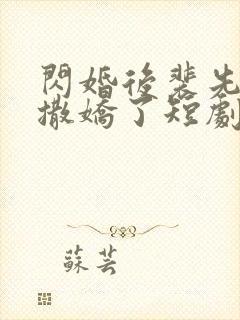 閃婚後裴先
撒嬌了短劇
蘇芸